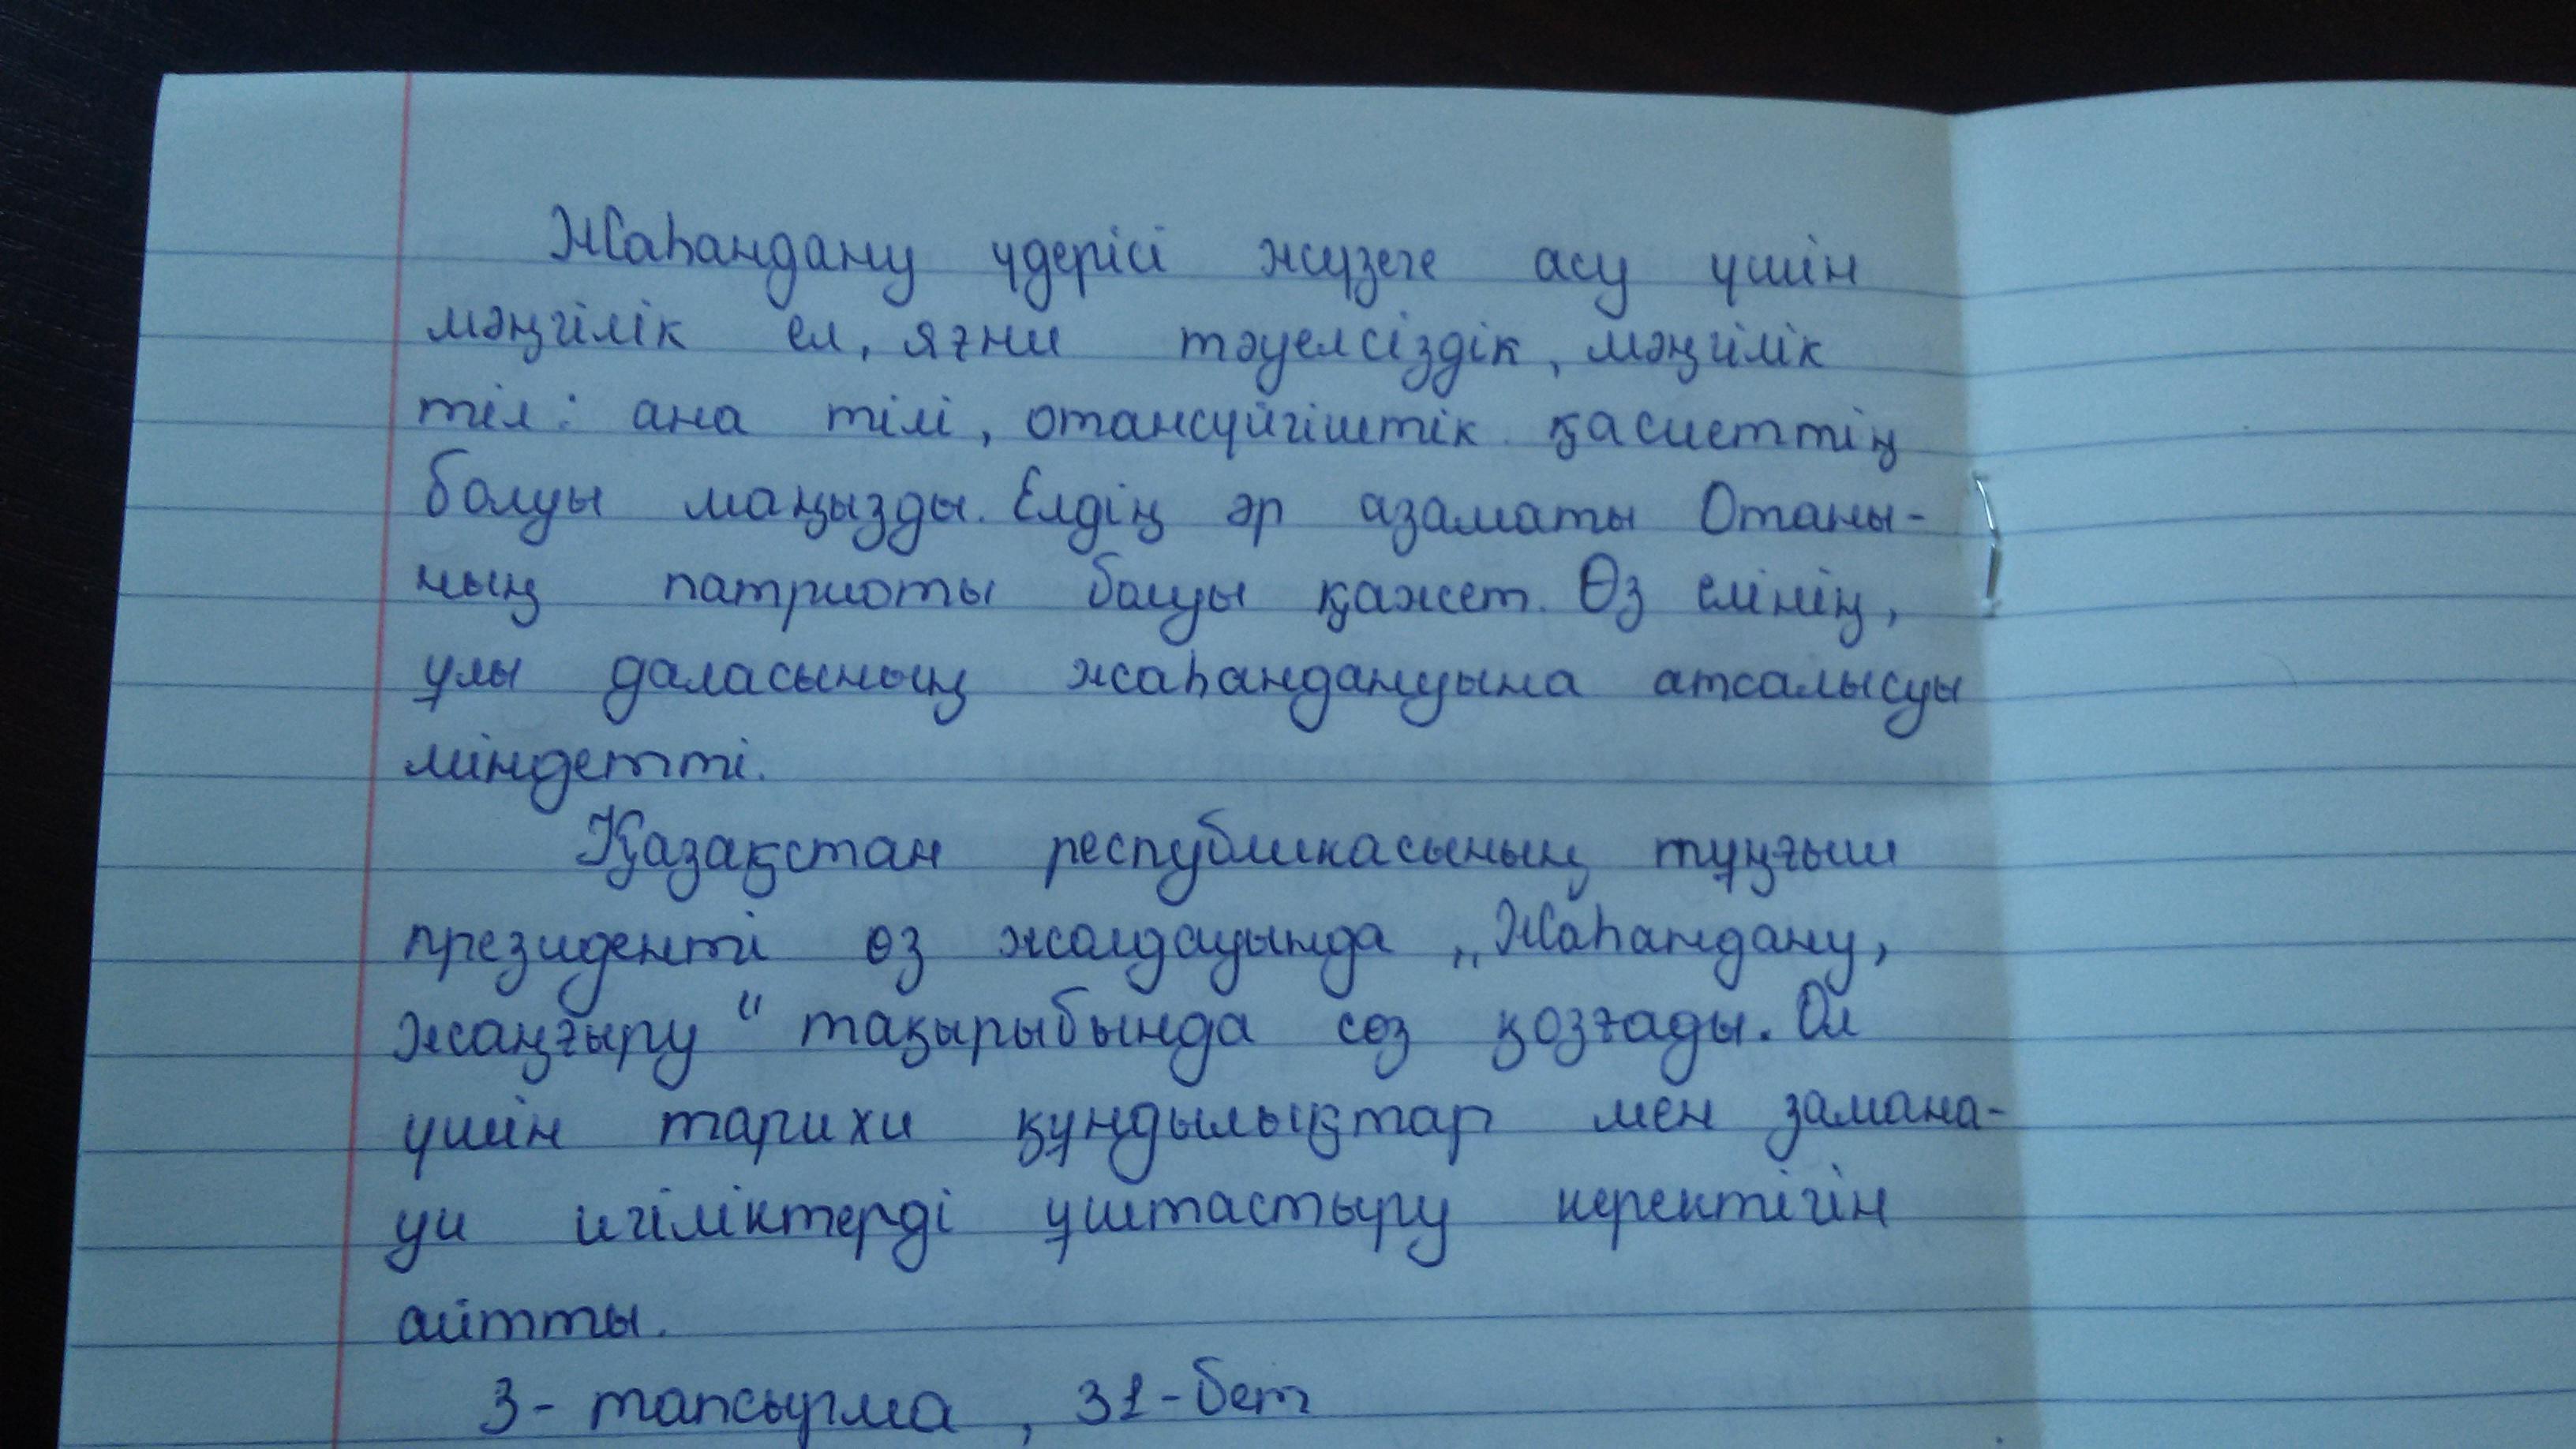 Жаһандану үдерісі жүзеге асу үшін
мәңгілік ел, яғни тәуелсіздік, мәңгілік
тіл: ана тілі, отансүйгіштік қасиеттің
болуы маңызды. Елдің әр азаматы Отаны-
ның патриоты болуы қажет. Өз елінің,
ұлы даласының жаһандануына атсалысуы
міндетті.
Қазақстан республикасының тұңғыш
президенті өз жолдауында „Жаһандану,
жаңғыру“ тақырыбында сөз қозғады. Ол
үшін тарихи құндылықтар мен замана-
уи игіліктерді ұштастыру керектігін
айтты.
3- тапсырма, 31-бет